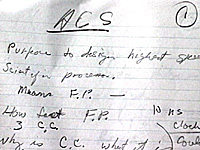 ACS
1
Purpose to design highest speed
Scientific processor.
Means F.P. —
How fast F.P.
10 ns
3 C.C.
Clock
Why is C.C. what it is
Could